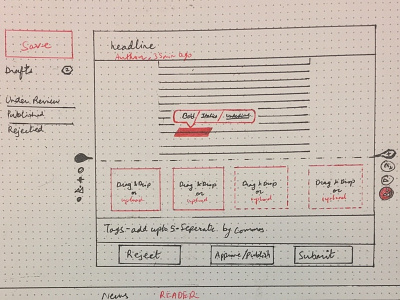 Save
Drafts 2
Under Review
Published
Rejected
headline
Author, 35min ago
Bold / Italic / Underline
Drag & Drop or upload
Drag & Drop or upload
Drag & Drop or upload
Drag & Drop or upload
Tags - add upto 5 - Seperate by comma
Reject
Approve/Publish
Submit
READER